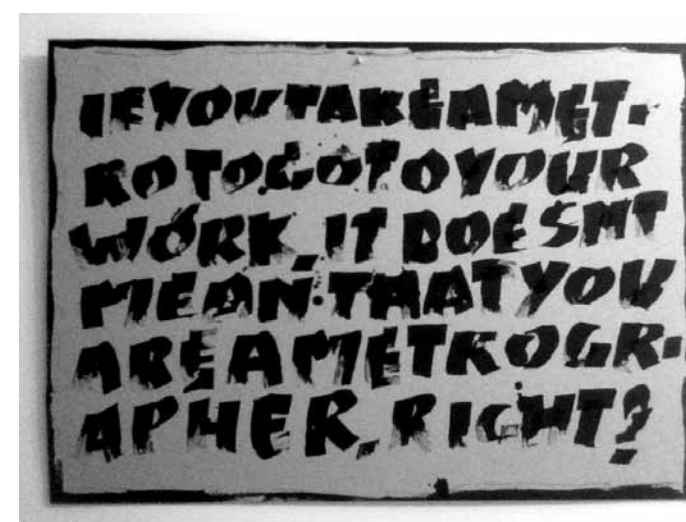 IF YOU TAKE A MET-
RO TO GO TO YOUR
WORK, IT DOESNT
MEAN THAT YOU
ARE A METROGR-
APHER, RIGHT?